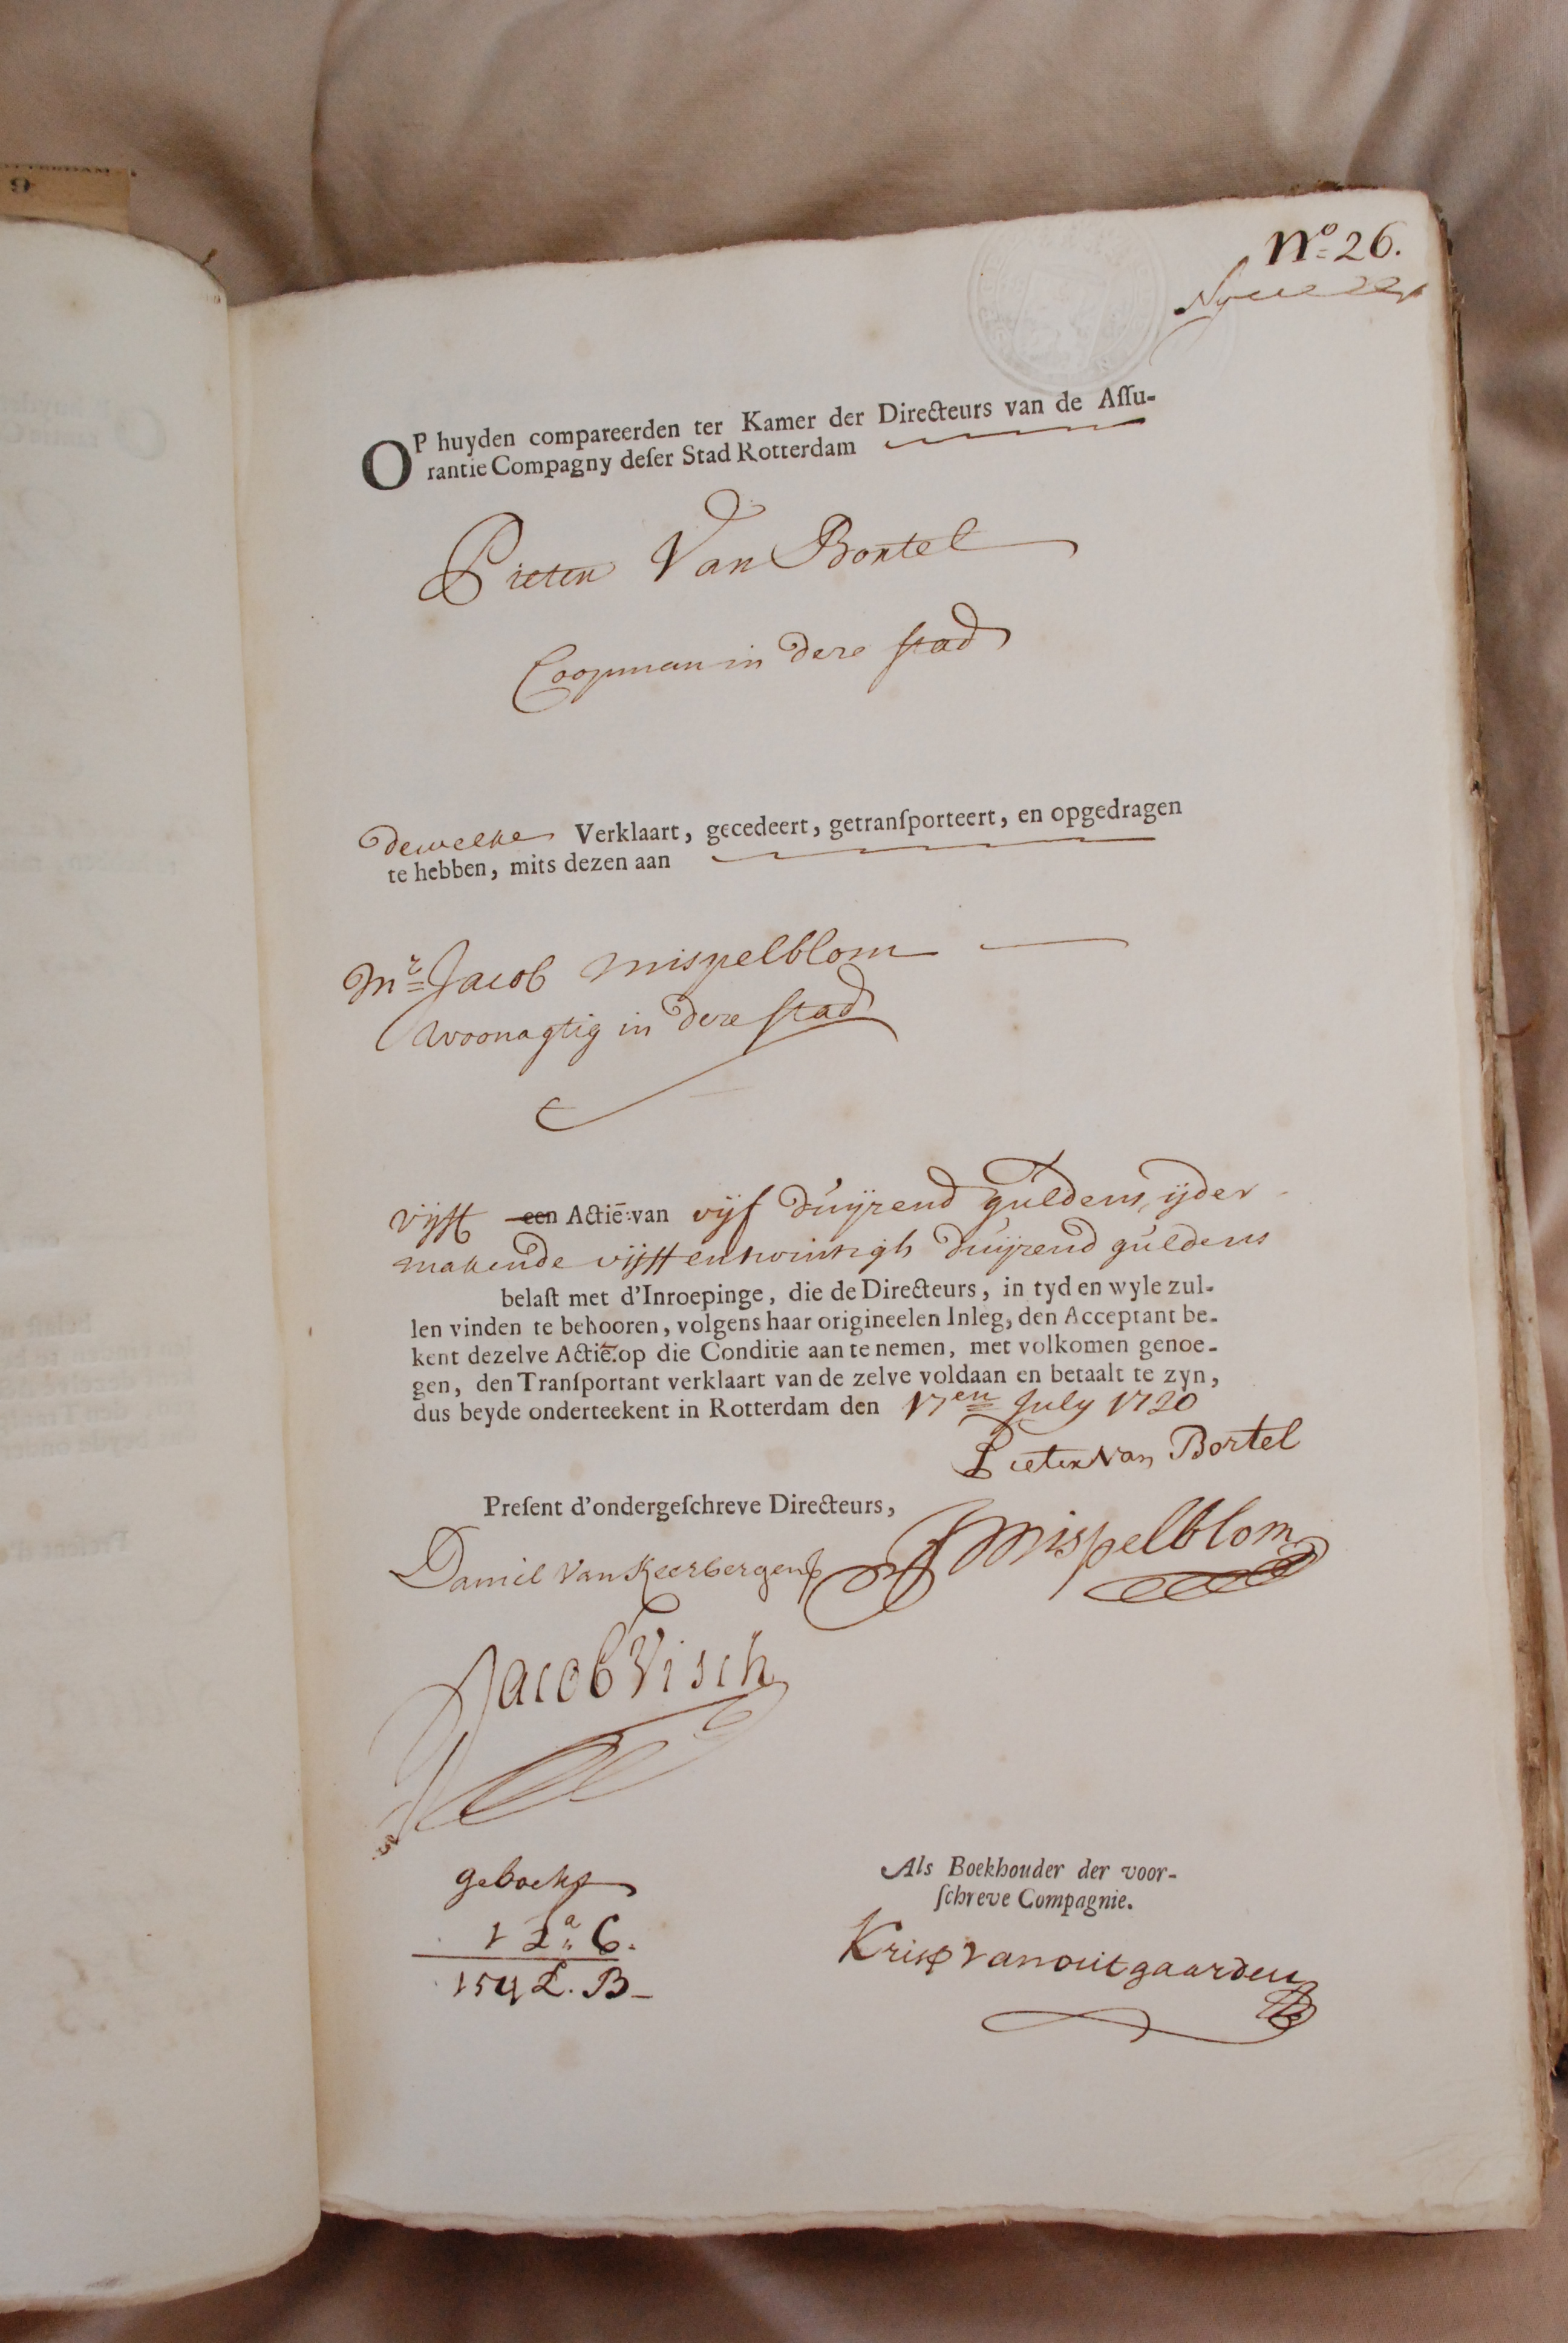 No. 26.
OP huyden compareerden ter Kamer der Directeurs van de Aſſu-
rantie Compagny deſer Stad Rotterdam
Pieter Van Bortel
Coopman in deze stad
dewelke Verklaart, gecedeert, getranſporteert, en opgedragen
te hebben, mits dezen aan
Mr Jacob Mispelblom
Woonagtig in deze stad
vijff een Actiē: van vijf duijzend guldens, ijder
makende vijff en twintigh duijzend guldens
belaſt met d'Inroepinge, die de Directeurs, in tyd en wyle zul-
len vinden te behooren, volgens haar origineelen Inleg, den Acceptant be-
kent dezelve Actie. op die Conditie aan te nemen, met volkomen genoe-
gen, den Tranſportant verklaart van de zelve voldaan en betaalt te zyn,
dus beyde onderteekent in Rotterdam den 17en July 1720
Pieter Van Bortel
Preſent d'ondergeſchreve Directeurs,
Mispelblom
Daniel Van Keerbergen
Jacob Visch
geboekt
1 La C.
154 L. B
Als Boekhouder der voor-
ſchreve Compagnie.
Kris van outgaarden